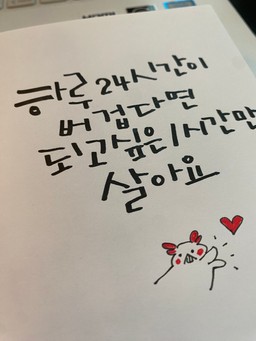 하루 24시간이
버겁다면
되고싶은 1시간만
살아요